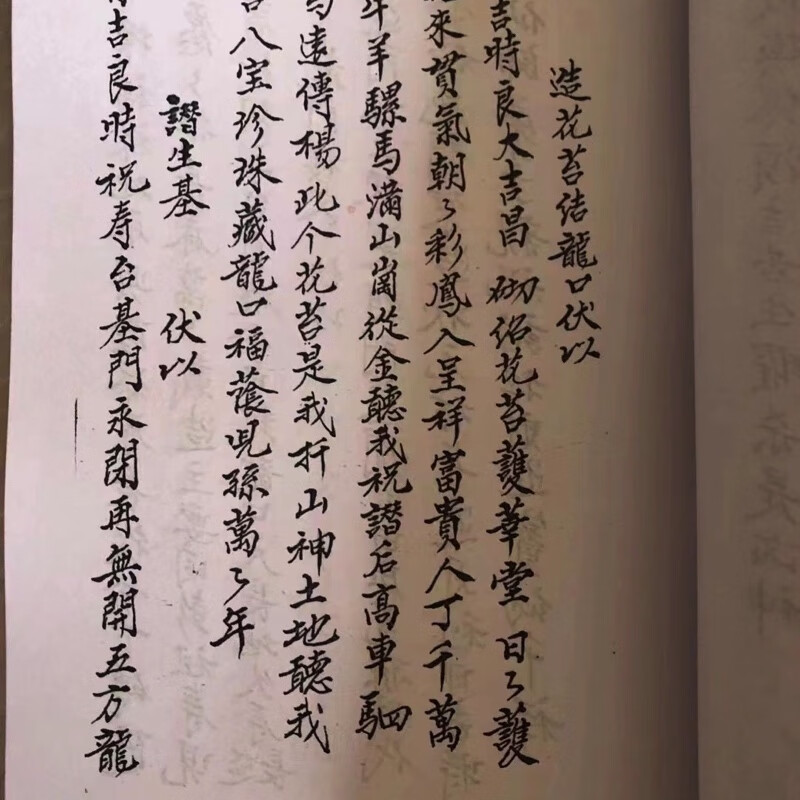 造花苔结龍口伏以
吉時良大吉昌 砌结花苔護華堂 日々護
來貫氣朝々彩鳳入呈祥富貴人丁千萬
羊騾馬满山崗從金聽我祝譛后高車駟
遠傳楊此个花苔是我扦山神土地聽我
八宝珍珠藏龍口福蔭児孫萬々年
譛生基 伏以
吉良時祝寿台基門永閉再無開五方龍